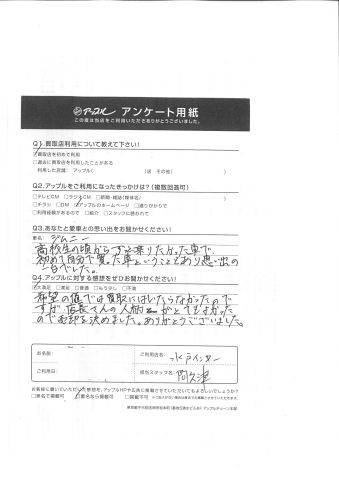 アップル アンケート用紙
この度は当店をご利用いただきありがとうございました。
Q1.買取店利用について教えて下さい!
☑買取店を初めて利用
□過去に買取店を利用したことがある
利用した店舗: アップル( )店 その他( )
Q2.アップルをご利用になったきっかけは?(複数回答可)
□テレビCM □ラジオCM □新聞・雑誌(媒体名/ )
□チラシ □DM ☑アップルのホームページ □通りがかりで
□利用経験があるので □紹介 □スタッフに誘われて
Q3.あなたと愛車との思い出をお聞かせください!
車名: ジムニー
高校生の頃からずっと乗りたかった車で、
初めて自分で買った車ということもあり思い出の
一台でした。
Q4.アップルに対する感想をぜひお聞かせください!
☑大満足 □満足 □普通 □もう少し □不満
希望の値では買取にはいたらなかったので
すが、店長さんの人柄がとてもよかった
のでお約を決めました。ありがとうございました。
お名前:
ご利用店名: 水戸インター
ご利用日:
担当スタッフ名: 阿久津
お客様に書いていただいた感想を、アップルHPや広告に掲載させていただいてもよろしいでしょうか?
□実名で掲載可 ☑匿名なら掲載可 □掲載不可